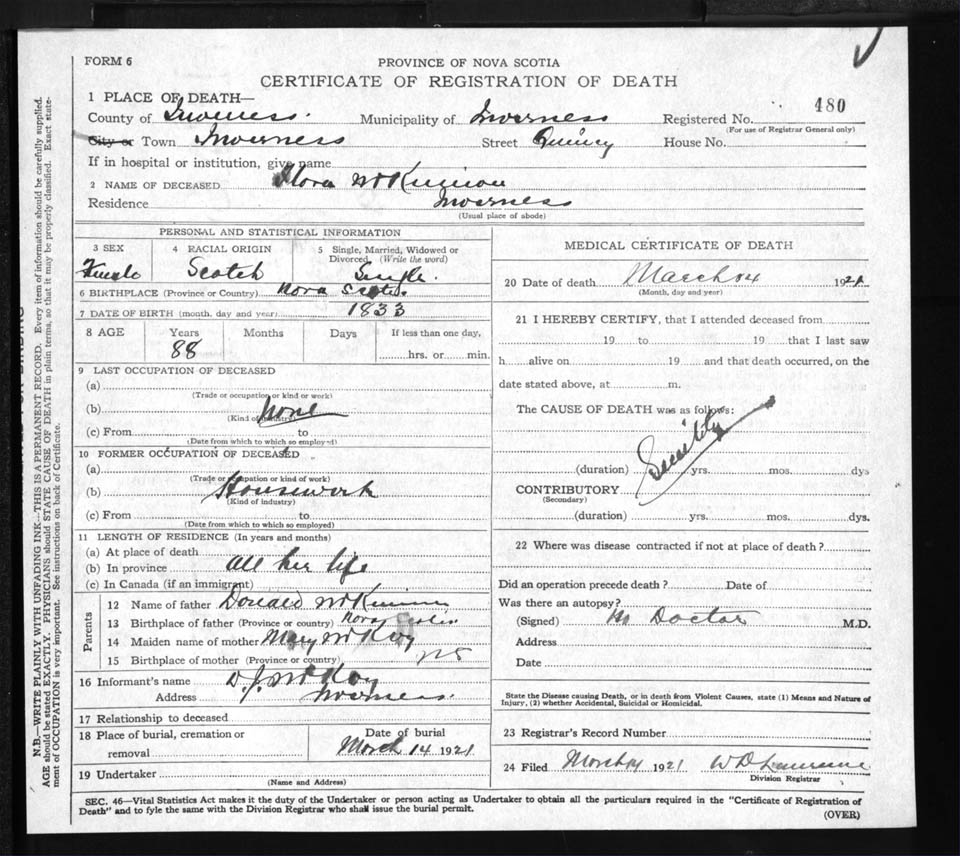 FORM 6
PROVINCE OF NOVA SCOTIA
CERTIFICATE OF REGISTRATION OF DEATH
1 PLACE OF DEATH—
480
County of Inverness. Municipality of Inverness Registered No.
(For use of Registrar General only)
City or Town Inverness Street Quincy House No.
If in hospital or institution, give name
2 NAME OF DECEASED Flora McKinnon
Residence Inverness
(Usual place of abode)
PERSONAL AND STATISTICAL INFORMATION
3 SEX 4 RACIAL ORIGIN 5 Single, Married, Widowed or
Divorced (Write the word)
Female Scotch Single.
6 BIRTHPLACE (Province or Country) Nova Scotia.
7 DATE OF BIRTH (month, day and year) 1833
8 AGE Years Months Days If less than one day,
88 hrs. or min.
9 LAST OCCUPATION OF DECEASED
(a)
(Trade or occupation or kind or work)
(b) None
(Kind of industry)
(c) From to
(Date from which to which so employed)
10 FORMER OCCUPATION OF DECEASED
(a)
(Trade or occupation or kind of work)
(b) Housework
(Kind of industry)
(c) From to
(Date from which to which so employed)
11 LENGTH OF RESIDENCE (In years and months)
(a) At place of death
(b) In province all her life
(c) In Canada (if an immigrant)
Parents
12 Name of father Donald McKinnon
13 Birthplace of father (Province or country) Nova Scotia
14 Maiden name of mother Mary McKay
15 Birthplace of mother (Province or country) NS
16 Informant's name D. J. McKay
Address Inverness.
17 Relationship to deceased
18 Place of burial, cremation or Date of burial
removal March 14 1921
19 Undertaker
(Name and Address)
MEDICAL CERTIFICATE OF DEATH
20 Date of death March 14 1921
(Month, day and year)
21 I HEREBY CERTIFY, that I attended deceased from
19 to 19 that I last saw
h alive on 19 and that death occurred, on the
date stated above, at m.
The CAUSE OF DEATH was as follows:
Senility
(duration) yrs. mos. dys
CONTRIBUTORY
(Secondary)
(duration) yrs. mos. dys.
22 Where was disease contracted if not at place of death?
Did an operation precede death? Date of
Was there an autopsy?
(Signed) Doctor M.D.
Address
Date
State the Disease causing Death, or in death from Violent Causes, state (1) Means and Nature of
Injury, (2) whether Accidental, Suicidal or Homicidal.
23 Registrar's Record Number
24 Filed March 14 1921 W D
Division Registrar
SEC. 46—Vital Statistics Act makes it the duty of the Undertaker or person acting as Undertaker to obtain all the particulars required in the "Certificate of Registration of
Death" and to fyle the same with the Division Registrar who shall issue the burial permit.
(OVER)
N.B.—WRITE PLAINLY WITH UNFADING INK—THIS IS A PERMANENT RECORD. Every item of information should be carefully supplied.
AGE should be stated EXACTLY. PHYSICIANS should STATE CAUSE OF DEATH in plain terms, so that it may be properly classified. Exact state-
ment of OCCUPATION is very important. See instructions on back of Certificate.